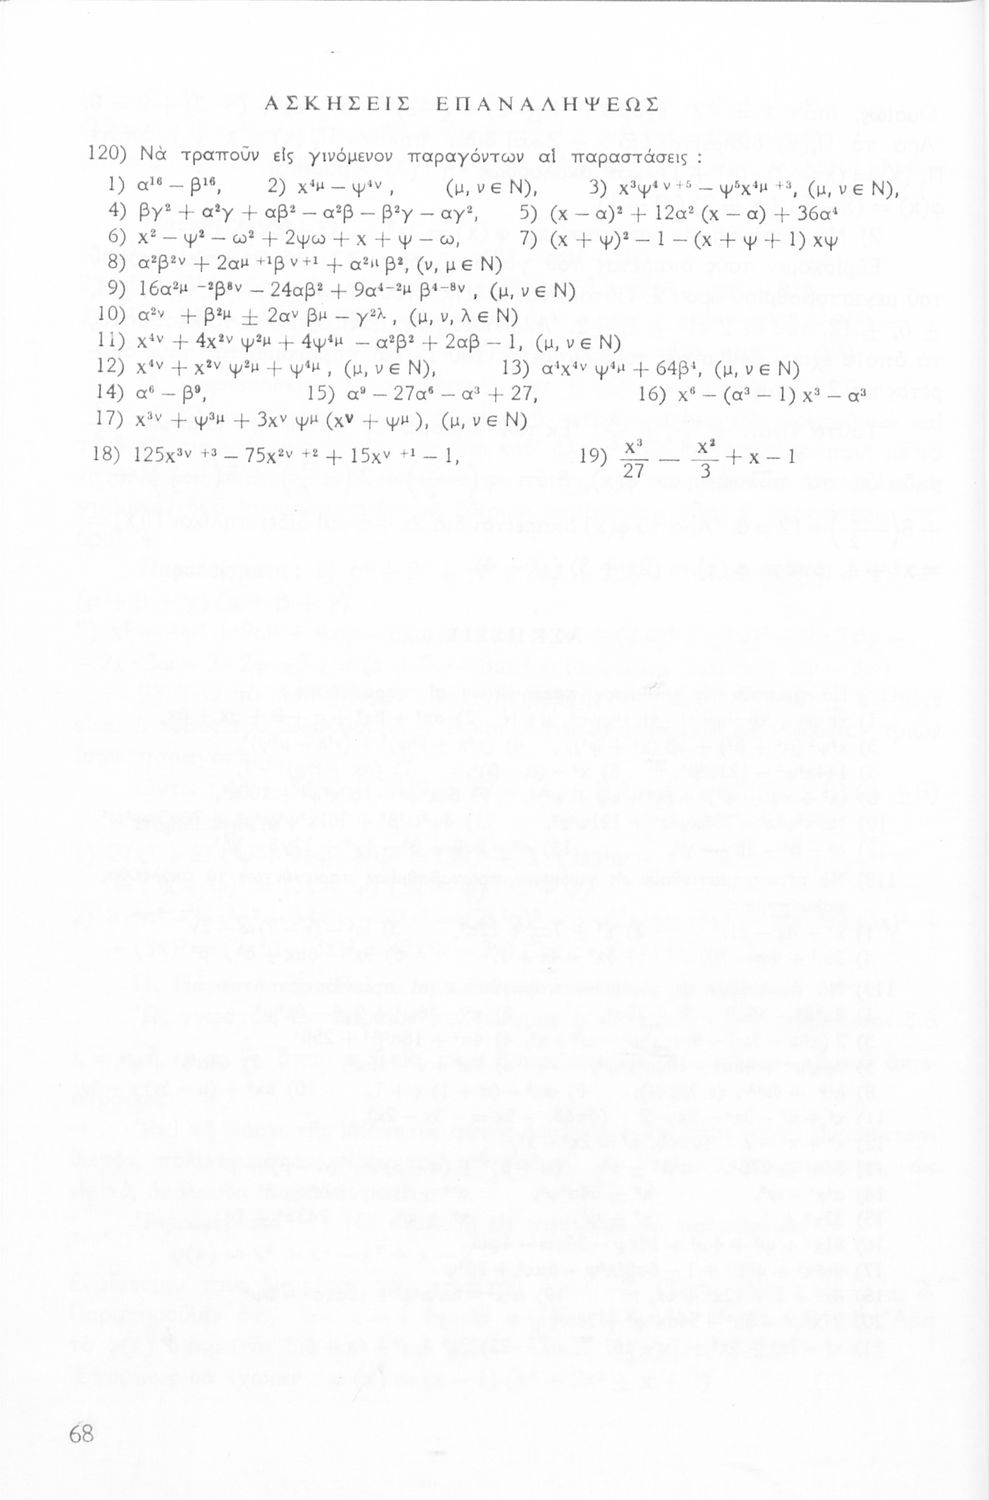 ΑΣΚΗΣΕΙΣ ΕΠΑΝΑΛΗΨΕΩΣ
120) Νὰ τραποῦν εἰς γινόμενον παραγόντων αἱ παραστάσεις :
1) α¹⁶ − β¹⁶, 2) x⁴ᵘ − ψ⁴ᵛ , (μ, ν ∈ Ν), 3) x³ψ⁴ ᵛ ⁺⁵ − ψ⁵x⁴ᵘ ⁺³, (μ, ν ∈ Ν),
4) βγ² + α²γ + αβ² − α²β − β²γ − αγ², 5) (x − α)² + 12α² (x − α) + 36α⁴
6) x² − ψ² − ω² + 2ψω + x + ψ − ω, 7) (x + ψ)² − 1 − (x + ψ + 1) xψ
8) α²β²ᵛ + 2αᵘ ⁺¹β ᵛ⁺¹ + α²ᵘ β², (ν, μ ∈ Ν)
9) 16α²ᵘ ⁻²β⁸ᵛ − 24αβ² + 9α⁴⁻²ᵘ β⁴⁻⁸ᵛ , (μ, ν ∈ Ν)
10) α²ᵛ + β²ᵘ ± 2αᵛ βᵘ − γ²λ , (μ, ν, λ ∈ Ν)
11) x⁴ᵛ + 4x²ᵛ ψ²ᵘ + 4ψ⁴ᵘ − α²β² + 2αβ − 1, (μ, ν ∈ Ν)
12) x⁴ᵛ + x²ᵛ ψ²ᵘ + ψ⁴ᵘ , (μ, ν ∈ Ν), 13) α⁴x⁴ᵛ ψ⁴ᵘ + 64β⁴, (μ, ν ∈ Ν)
14) α⁶ − β⁹, 15) α⁹ − 27α⁶ − α³ + 27, 16) x⁶ − (α³ − 1) x³ − α³
17) x³ᵛ + ψ³ᵘ + 3xᵛ ψᵘ (xᵛ + ψᵘ ), (μ, ν ∈ Ν)
18) 125x³ᵛ ⁺³ − 75x²ᵛ ⁺² + 15xᵛ ⁺¹ − 1, 19) x³/27 − x²/3 + x − 1
68